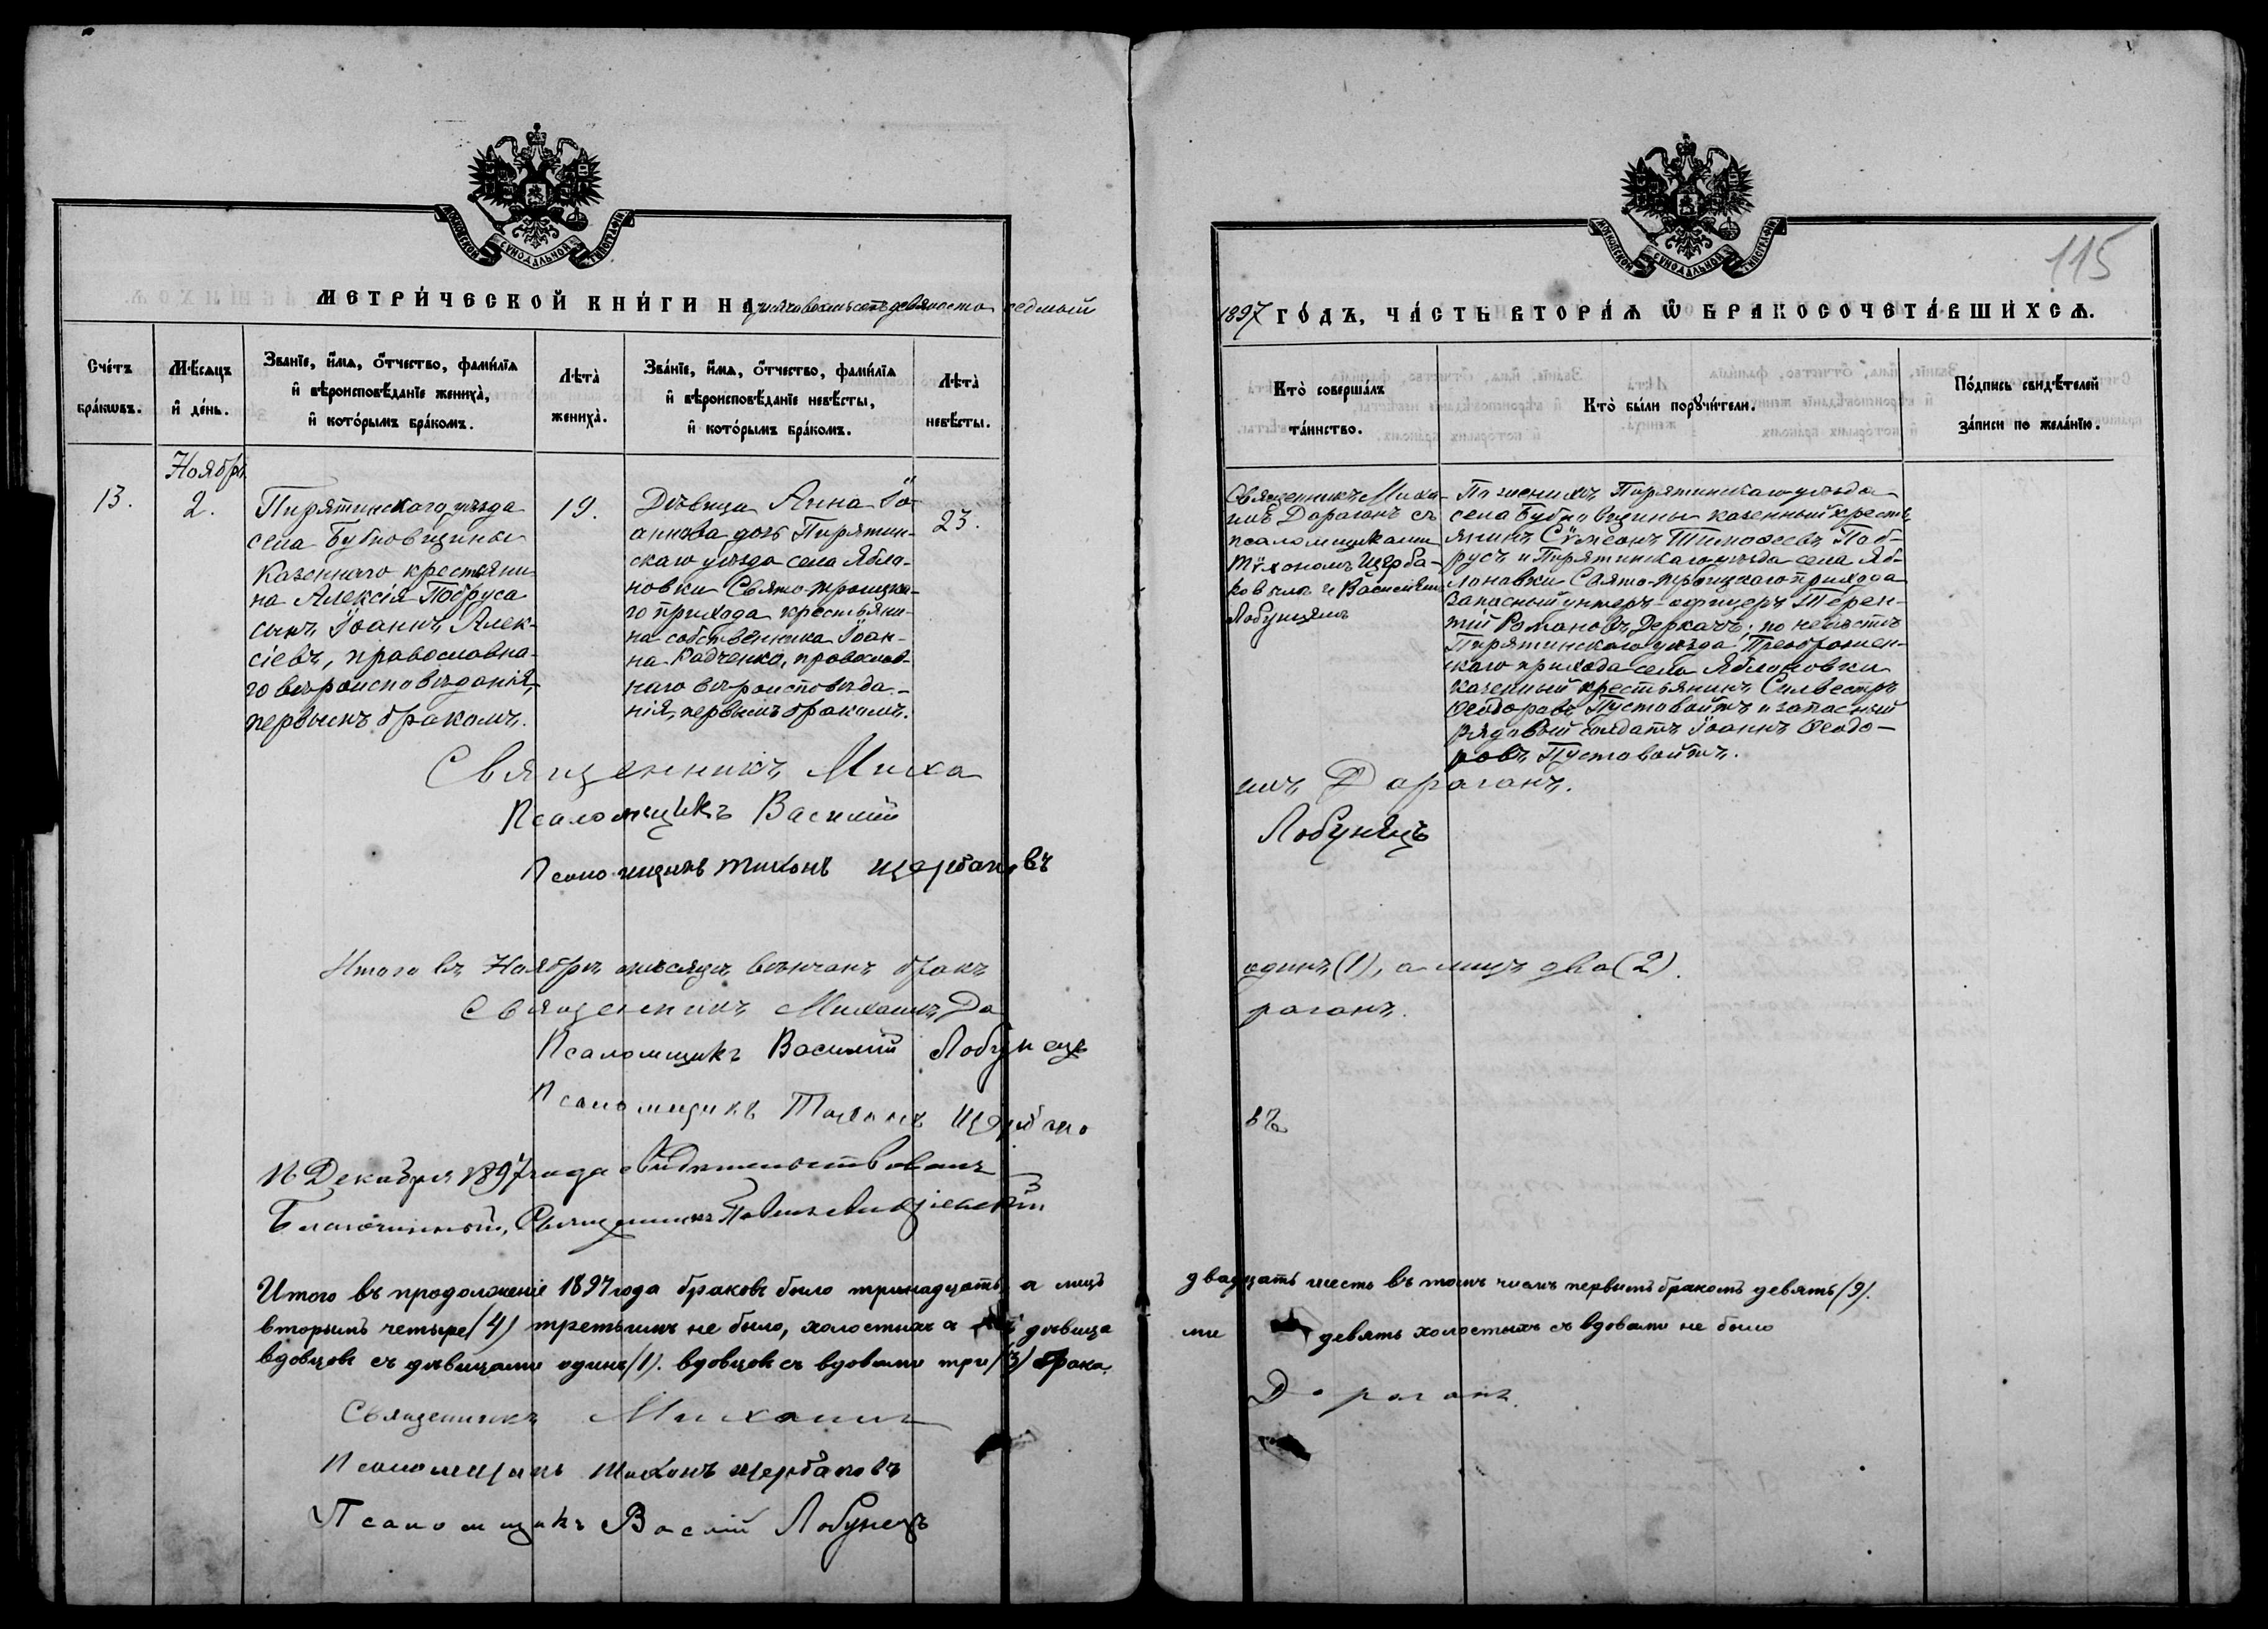 МОСКОВСКОЙ СѴНОДАЛЬНОЙ ТИПОГРАФІИ
МЕТРИ́ЧЕСКОЙ КНИ́ГИ НА тысяча восемьсотъ девяносто седмый
Сче́тъ бра́ковъ.
Мѣ́сяцъ и҆ де́нь.
Зва́нїе, и҆́мѧ, ѻ҆́тчество, фами́лїѧ
и҆ вѣроисповѣ́данїе жениха̀,
и҆ кото́рымъ бра́комъ.
Лѣта̀ жениха̀.
Зва́нїе, и҆́мѧ, ѻ҆́тчество, фами́лїѧ
и҆ вѣроисповѣ́данїе невѣ́сты,
и҆ кото́рымъ бра́комъ.
Лѣта̀ невѣ́сты.
13.
Ноябрь
2.
Пирятинскаго уѣзда
села Бубновщины
казеннаго крестьяни-
на Алексія Побруса
сынъ Іоаннъ Алек-
сіевъ, православна-
го вѣроисповѣданія,
первымъ бракомъ.
19.
Дѣвица Анна Іо-
аннова дочь Пирятин-
скаго уѣзда села Ябло-
новки Свято-Троицка-
го прихода крестьяни-
на собственника Іоан-
на Радченко, православ-
наго вѣроисповѣда-
нія, первымъ бракомъ.
23.
Священникъ Миха
Псаломщикъ Василій
Псаломщикъ Тихонъ Щербаковъ
Итого въ Ноябрѣ мѣсяцѣ вѣнчанъ бракъ
Священникъ Михаилъ Да
Псаломщикъ Василій Лобунецъ
Псаломщикъ Тихонъ Щербако
16 Декабря 1897 года свидѣтельствовалъ
Благочинный, Священникъ Павелъ
Итого въ продолженіе 1897 года браковъ было тринадцать, а лицъ
вторымъ четыре (4) третьимъ не было, холостыхъ съ дѣвица
вдовцовъ съ дѣвицами одинъ (1). вдовцовъ съ вдовами три (3) брака.
Священникъ Михаилъ
Псаломщикъ Тихонъ Щербаковъ
Псаломщикъ Василій Лобунецъ
115
МОСКОВСКОЙ СѴНОДАЛЬНОЙ ТИПОГРАФІИ
1897 ГО́ДЪ, ЧА́СТЬ ВТОРА́Ѧ Ѡ҆ БРАКОСОЧЕТА́ВШИХСѦ.
Кто̀ соверша́лъ та́инство.
Кто̀ бы́ли порꙋчи́тели.
По́дпись свидѣ́телей за́писи по жела́нїю.
Священникъ Миха-
илъ Дараганъ съ
псаломщиками
Тѵхономъ Щерба-
ковымъ и Василіемъ
Лобунцемъ
По женихѣ Пирятинскаго уѣзда
села Бубновщины казенный кресть-
янинъ Сѵмеонъ Тимоѳеевъ Поб-
русъ и Пирятинскаго уѣзда села Яб-
лоновки Свято-Троицкаго прихода
запасный унтеръ-офицеръ Терен-
тій Романовъ Деркачъ; по невѣстѣ
Пирятинскаго уѣзда, Преображен-
скаго прихода села Яблоновки
казенный крестьянинъ Сильвестръ
Ѳеодоровъ Пустовойтъ и запасный
рядовый солдатъ Іоаннъ Ѳеодо-
ровъ Пустовойтъ.
илъ Дараганъ.
Лобунецъ
одинъ (1), а лицъ два (2).
раганъ.
въ
двадцать шесть въ томъ числѣ первымъ бракомъ девять (9).
ми девять холостыхъ съ вдовами не было
Дараганъ.